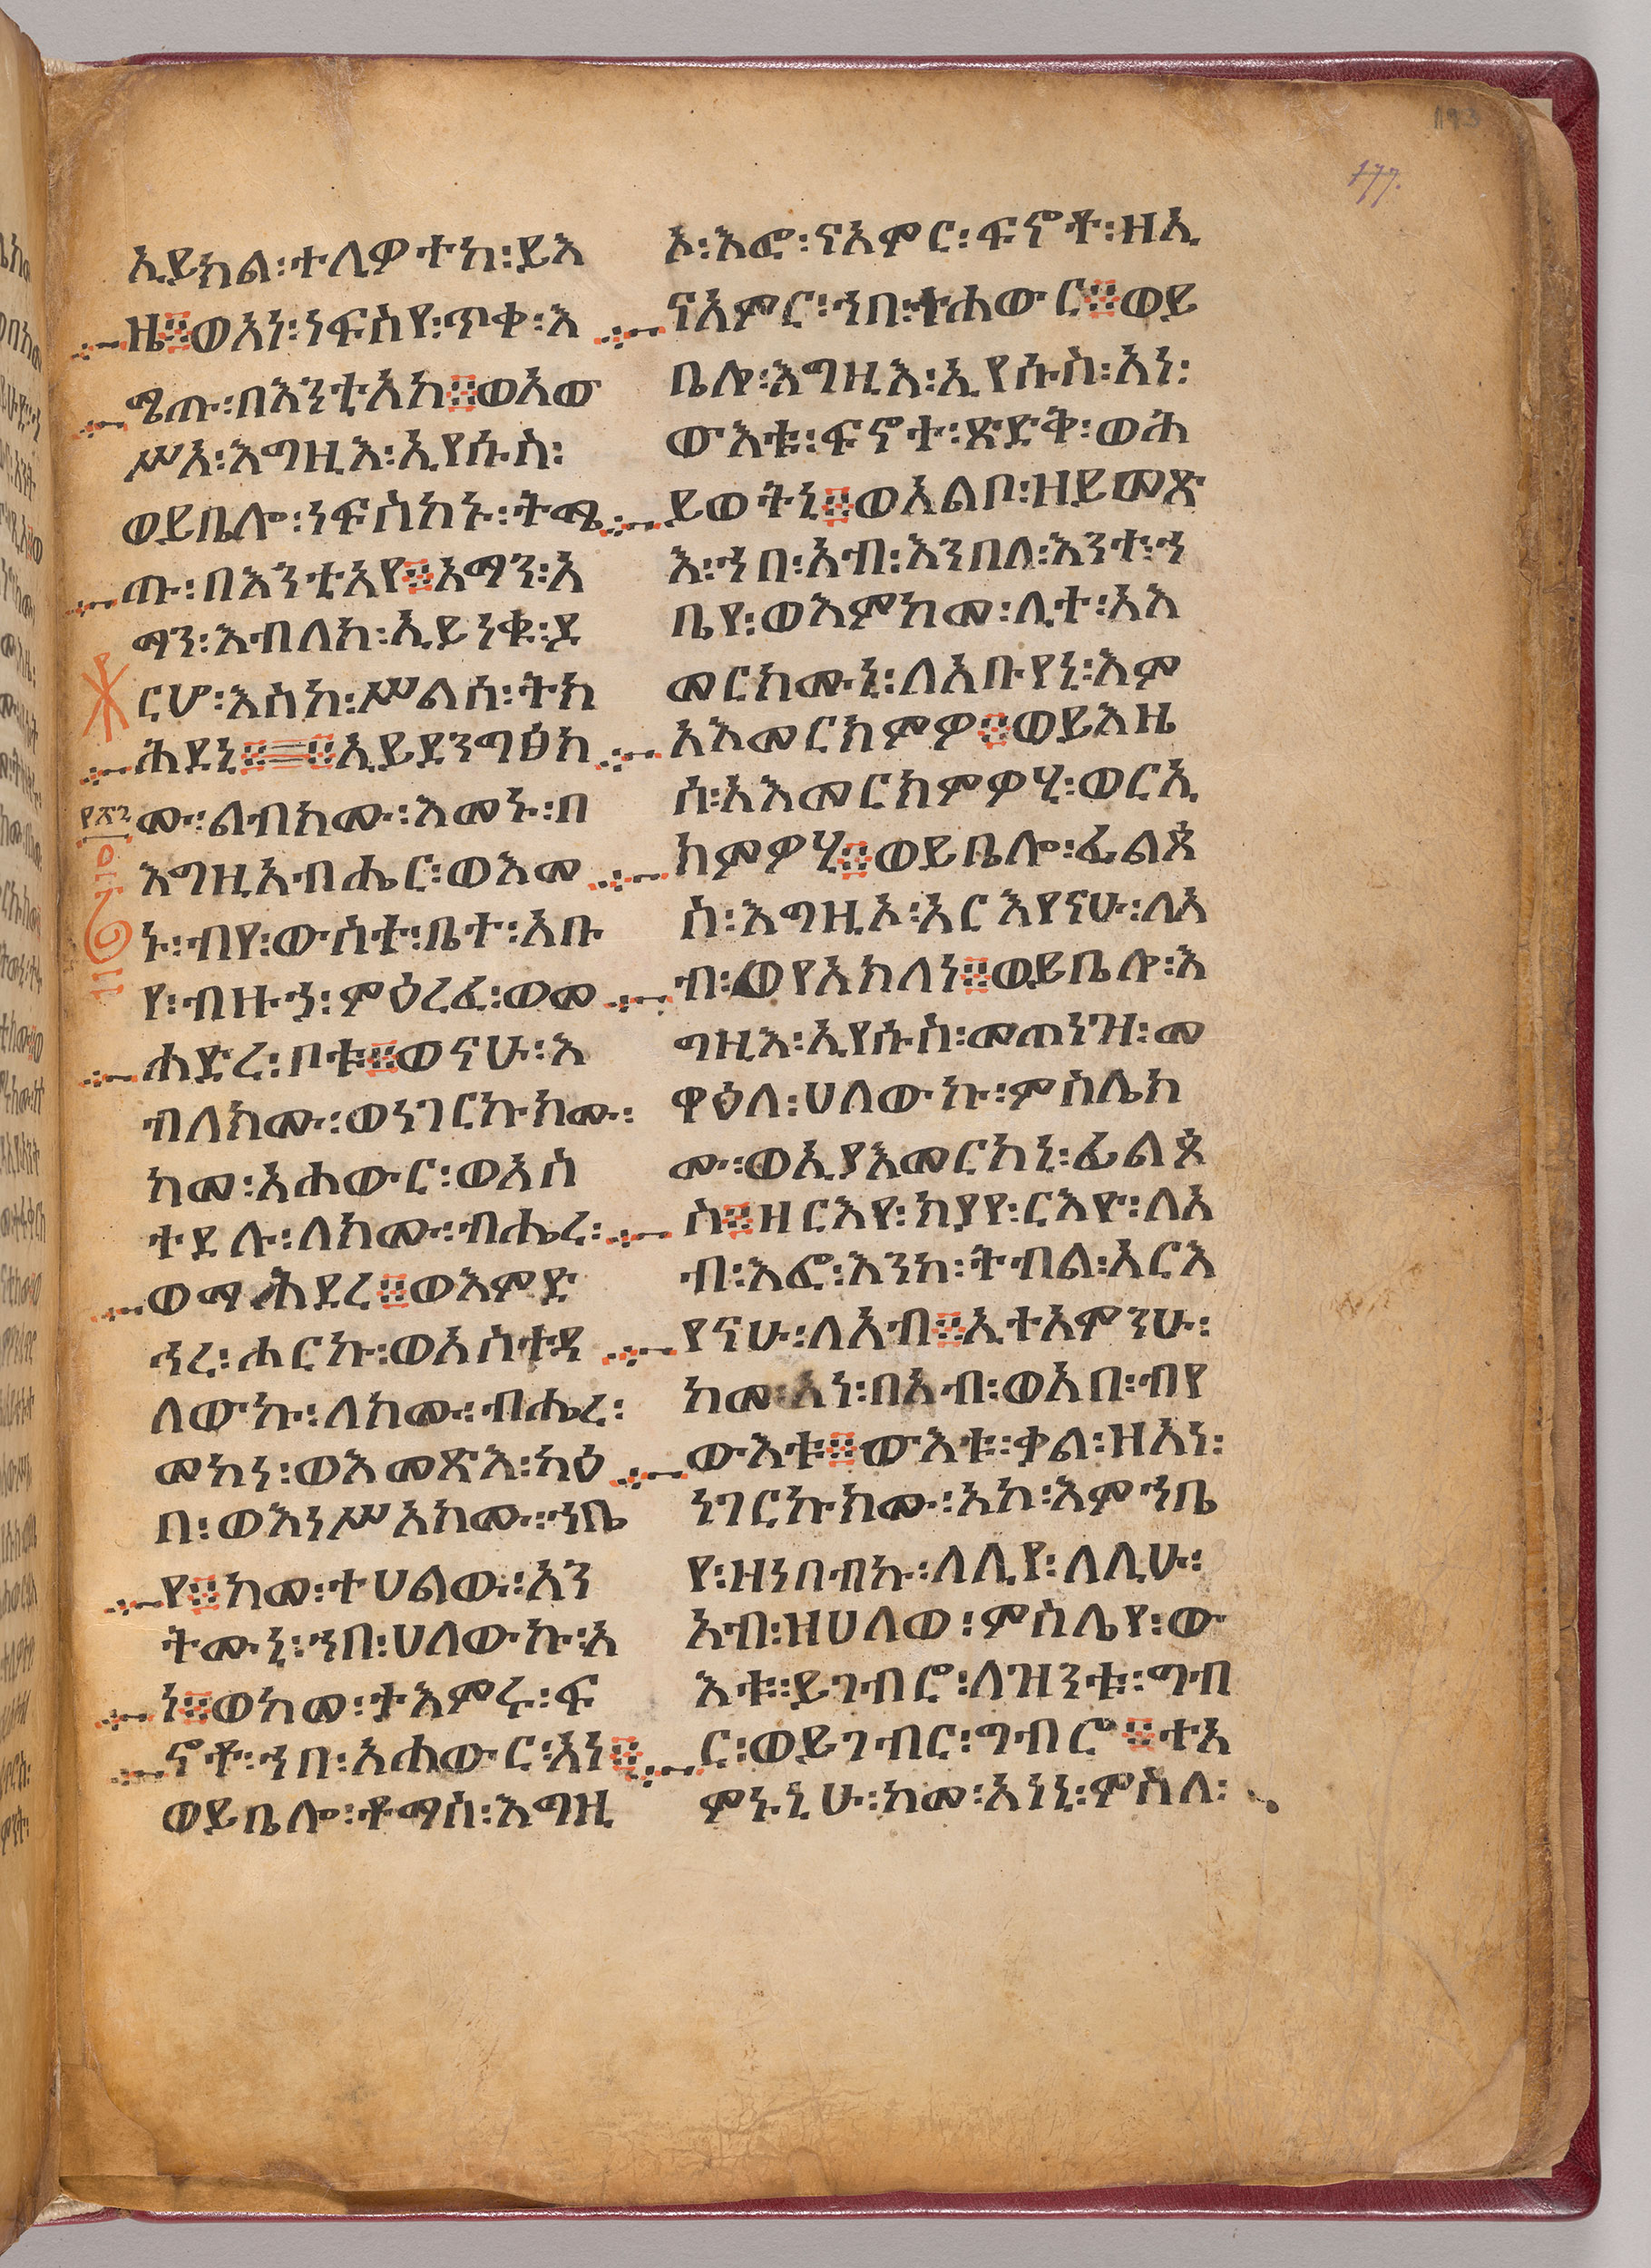 ኢይክል፡ተሊዎተከ፡ይእ
ዜ፨ወአነ፡ነፍስየ፡ጥቀ፡እ
ሜጡ፡በእንቲአከ፨ወአው
ሥአ፡እግዚእ፡ኢየሱስ፡
ወይቤሎ፡ነፍስከኑ፡ትሜ
ጡ፡በእንቲአየ፨አማን፡አ
ማን፡እብለከ፡ኢይነቁ፡ዶ
ርሆ፡እስከ፡ሥልሰ፡ትክ
ሕደኒ፨፨ኢይደንግፅክ
ሙ፡ልብክሙ፡እመኑ፡በ
እግዚአብሔር፡ወእመ
ኑ፡ብየ፡ውስተ፡ቤተ፡አቡ
የ፡ብዙኅ፡ምዕረፈ፡ወመ
ሐድረ፡ቦቱ፨ወናሁ፡እ
ብለክሙ፡ወነገርኩክሙ፡
ከመ፡አሐውር፡ወአስ
ተደሉ፡ለክሙ፡ብሔረ፡
ወማሕደረ፨ወእምድ
ኅረ፡ሐርኩ፡ወአስተዳ
ለውኩ፡ለክሙ፡ብሔረ፡
መከነ፡ወእመጽእ፡ካዕ
በ፡ወእነሥአክሙ፡ኀቤ
የ፨ከመ፡ተሀልው፡አን
ትሙኒ፡ኀበ፡ሀለውኩ፡አ
ነ፨ወከመ፡ታእምሩ፡ፍ
ኖቶ፡ኀበ፡አሐውር፡አነ፨
ወይቤሎ፡ቶማስ፡እግዚ
ኦ፡እፎ፡ናአምር፡ፍኖቶ፡ዘኢ
ናአምር፡ኀበ፡ተሐውር፨ወይ
ቤሎ፡እግዚእ፡ኢየሱስ፡አነ፡
ውእቱ፡ፍኖተ፡ጽድቅ፡ወሕ
ይወትኒ፨ወአልቦ፡ዘይመጽ
እ፡ኀበ፡አብ፡እንበለ፡እንተ፡ኀ
ቤየ፡ወእምከመ፡ሊተ፡አእ
መርክሙኒ፡ለአቡየኒ፡እም
አእመርክምዎ፨ወይእዜ
ሰ፡አእመርክምዎሂ፡ወርኢ
ክምዎሂ፨ወይቤሎ፡ፊልጶ
ስ፡እግዚኦ፡አርእየናሁ፡ለአ
ብ፡ወየአክለነ፨ወይቤሎ፡እ
ግዚእ፡ኢየሱስ፡መጠነዝ፡መ
ዋዕለ፡ሀለውኩ፡ምስሌክ
ሙ፡ወኢያእመርከኒ፡ፊልጶ
ስ፨ዘርእየ፡ኪያየ፡ርእዮ፡ለአ
ብ፡እፎ፡እንከ፡ትብል፡አርእ
የናሁ፡ለአብ፨ኢተአምንሁ፡
ከመ፡አነ፡በአብ፡ወአበ፡ብየ
ውእቱ፨ውእቱ፡ቃል፡ዘአነ፡
ነገርኩክሙ፡አኮ፡እምኀቤ
የ፡ዘነበብኩ፡ለሊየ፡ለሊሁ፡
አብ፡ዘሀለወ፡ምስሌየ፡ው
እቱ፡ይገብሮ፡ለዝንቱ፡ግብ
ር፡ወይገብር፡ግብሮ፨ተአ
ምኑኒሁ፡ከመ፡አነኒ፡ምስለ፡
177.